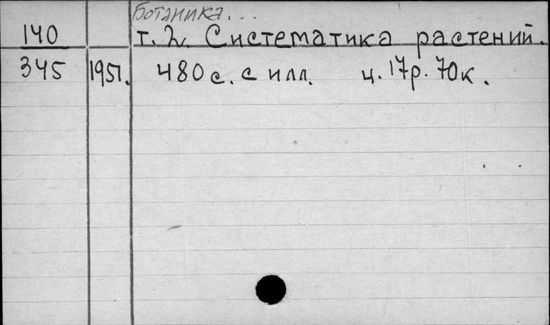 Ботаника...
140 т. 2. Систематика растений.
345 1951. 480 с. с илл. ц. 17р. 70к.